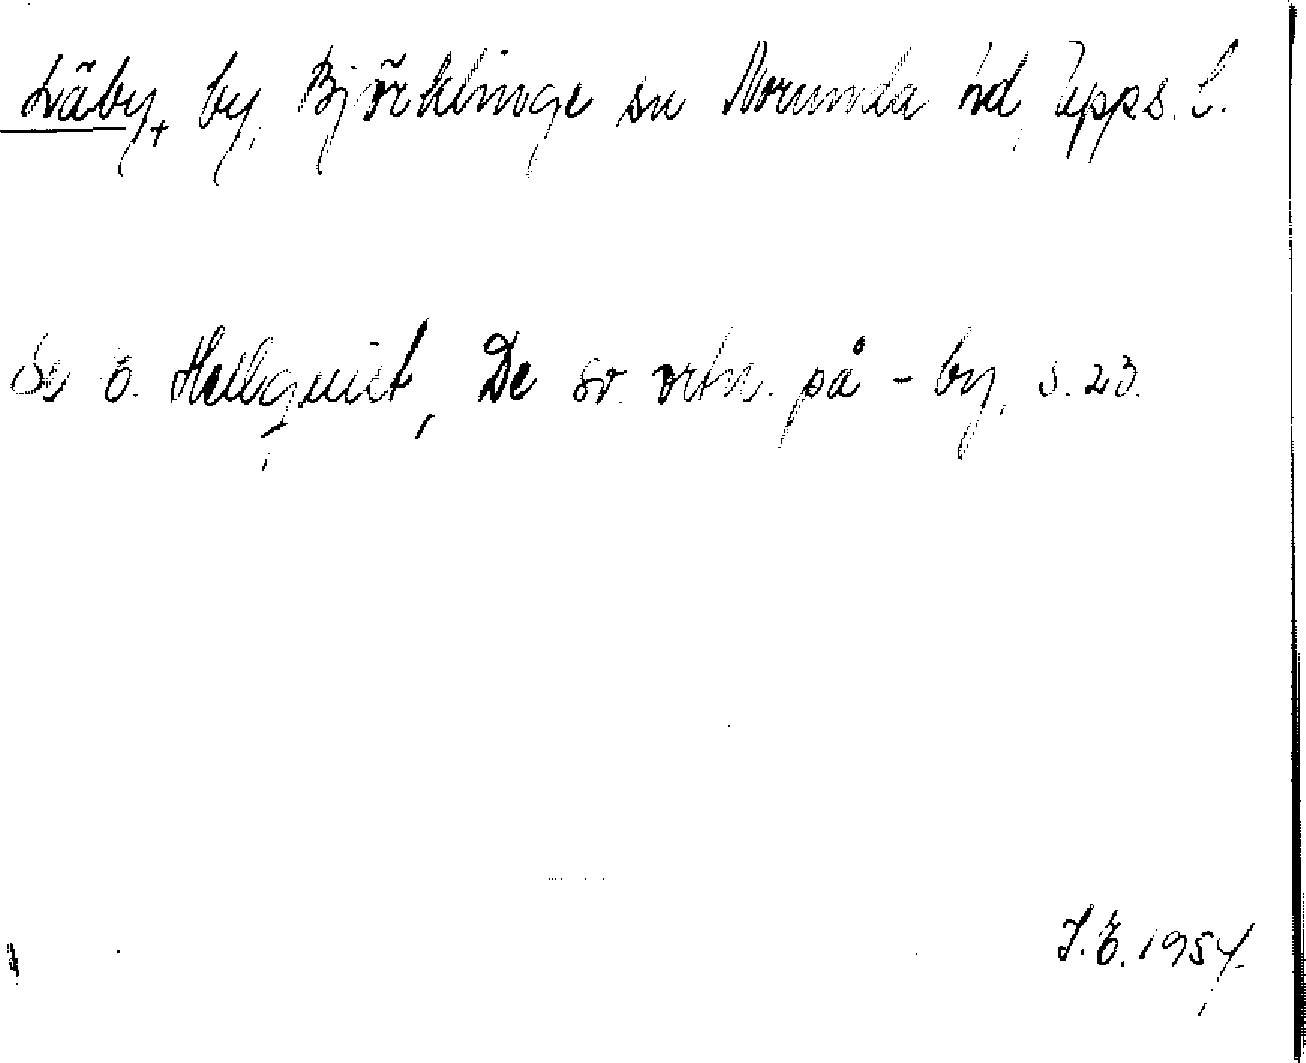 Läby, by, Björklinge sn Norunda hd, Upps. l.
Se E. Hellquist, De sv. ortn. på -by, s. 23.
I.E. 1954.